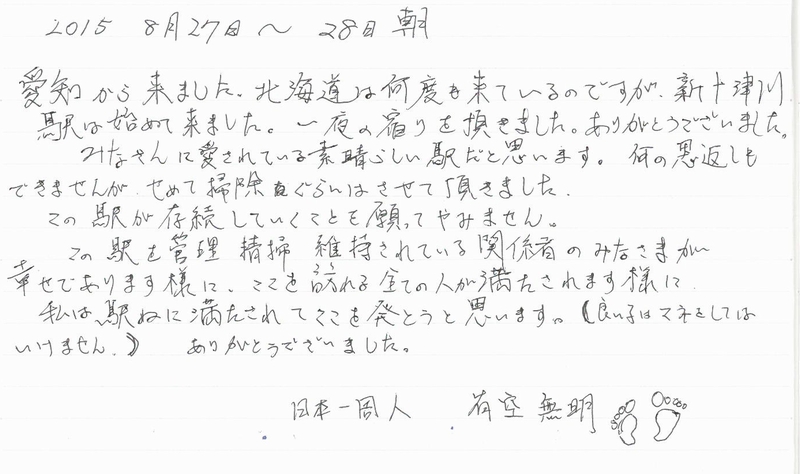 2015 8月27日〜28日 朝
愛知から来ました。北海道は何度も来ているのですが、新十津川
駅は始めて来ました。一夜の宿りを頂きました。ありがとうでございました。
みなさんに愛されている素晴らしい駅だと思います。何の恩返しも
できませんが、せめて掃除ぐらいはさせて頂きました。
この駅が存続していくことを願ってやみません。
この駅を管理 精掃 維持されている関係者のみなさまが
幸せであります様に、ここを訪れる全ての人が満たされます様に
私は駅ねに満たされてここを発とうと思います。《良い子はマネをしては
いけません。》 ありがとうでございました。
日本一周人 有空無明